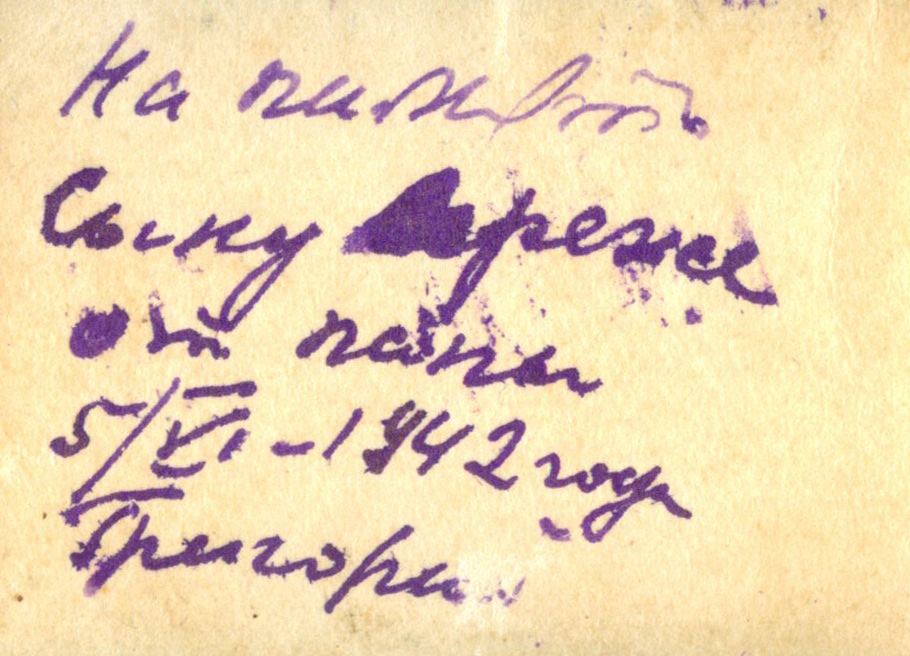 На память
Сыну Сереже
от папы
5/VI-1942 года
Григорий